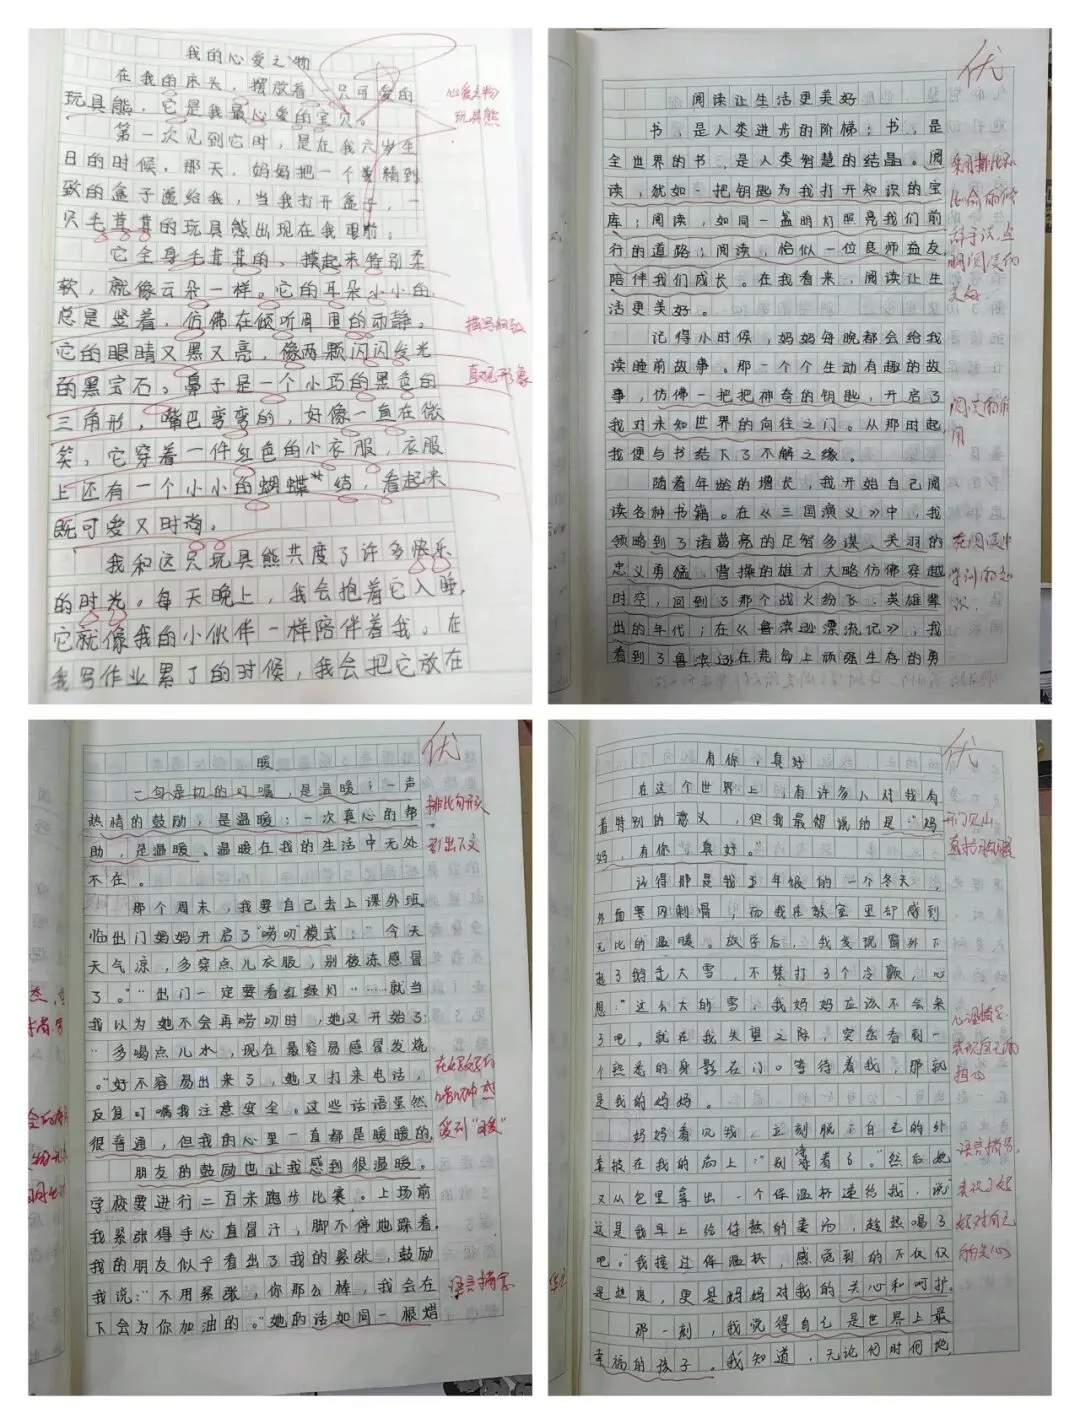 我的心爱之物
在我的床头，摆放着一只可爱的
玩具熊，它是我最心爱的宝贝。
第一次见到它时，是在我六岁生
日的时候。那天，妈妈把一个精
致的盒子递给我，当我打开盒子，一
只毛茸茸的玩具熊出现在我眼前。
它全身毛茸茸的，摸起来特别柔
软，就像云朵一样。它的耳朵小小的，
总是竖着，仿佛在倾听周围的动静。
它的眼睛又黑又亮，像两颗闪闪发光
的黑宝石。鼻子是一个小巧的黑色的
三角形，嘴巴弯弯的，好像一直在微
笑，它穿着一件红色的小衣服，衣服
上还有一个小小的蝴蝶结，看起来
既可爱又时尚。
我和这只玩具熊共度了许多快乐
的时光。每天晚上，我会抱着它入睡，
它就像我的小伙伴一样陪伴着我。在
我写作业累了的时候，我会把它放在
心爱之物
玩具熊
描写细致
直观形象
优
阅读让生活更美好
书，是人类进步的阶梯；书，是
全世界的书，是人类智慧的结晶。阅
读，犹如一把钥匙为我打开知识的宝
库；阅读，如同一盏明灯照亮我们前
行的道路；阅读，恰似一位良师益友，
陪伴我们成长。在我看来，阅读让生
活更美好。
记得小时候，妈妈每晚都会给我
读睡前故事。那一个个生动有趣的故
事，仿佛一把把神奇的钥匙，开启了
我对未知世界的向往之门。从那时起，
我便与书结下了不解之缘。
随着年龄的增长，我开始自己阅
读各种书籍。在《三国演义》中，我
领略到了诸葛亮的足智多谋，关羽的
忠义勇猛，曹操的雄才大略仿佛穿越
时空，回到了那个战火纷飞，英雄辈
出的年代；在《鲁滨逊漂流记》，我
看到了鲁滨逊在荒岛上顽强生存的勇
优
暖
一句亲切的叮嘱，是温暖；一声
热情的鼓励，是温暖；一次真心的帮
助，是温暖。温暖在我的生活中无处
不在。
那个周末，我要自己去上课外班。
临出门妈妈开启了“唠叨”模式：“今天
天气凉，多穿点儿衣服，别被冻感冒
了。”“出门一定要看红绿灯“……就当
我以为她不会再唠叨时，她又开始了：
“多喝点儿水，现在最容易感冒发烧
。”好不容易出来了，她又打来电话，
反复叮嘱我注意安全。这些话语虽然
很普通，但我的心里一直都是暖暖的。
朋友的鼓励也让我感到很温暖。
学校要进行二百米跑步比赛。上场前
我紧张得手心直冒汗，脚不停地跺着。
我的朋友似乎看出了我的紧张，鼓励
我说：“不用紧张，你那么棒，我会在
下会为你加油的。”她的话如同一根蜡
排比句开头
引出下文
语言描写
优
有你，真好
在这个世界上，有许多人对我有
着特别的意义，但我最想说的是：“妈
妈，有你真好。”
记得那是我五年级的一个冬天，
外面寒风刺骨，而我在教室里却感到
无比的温暖。放学后，我发现窗外下
起了鹅毛大雪，不禁打了个冷颤，心
想：“这么大的雪，我妈妈应该不会来
了吧。就在我失望之际，突然看到一
个熟悉的身影在门口等待着我，那就
是我的妈妈。
妈妈看见我，立刻脱下自己的外
套披在我的肩上：“别冻着了。”然后她
又从包里拿出一个保温杯递给我，说
这是我早上给你熬的姜汤，趁热喝了
吧。”我接过保温杯，感觉到的不仅仅
是热度，更是妈妈对我的关心和呵护。
那一刻，我觉得自己是世界上最
幸福的孩子。我知道，无论何时何地，
开门见山
心理描写
语言描写
表现了妈
妈对自己
的关心